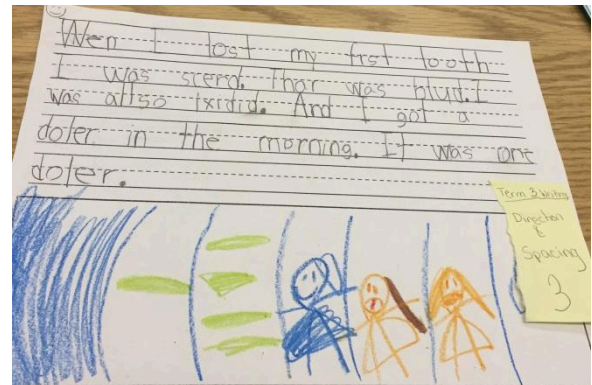 Wen I lost my frst tooth
I was scerd. Thar was blud. I
was allso ixidid. And I got a
doler in the morning. It was one
doler.
Term 3 Writing
Direction
&
Spacing
3